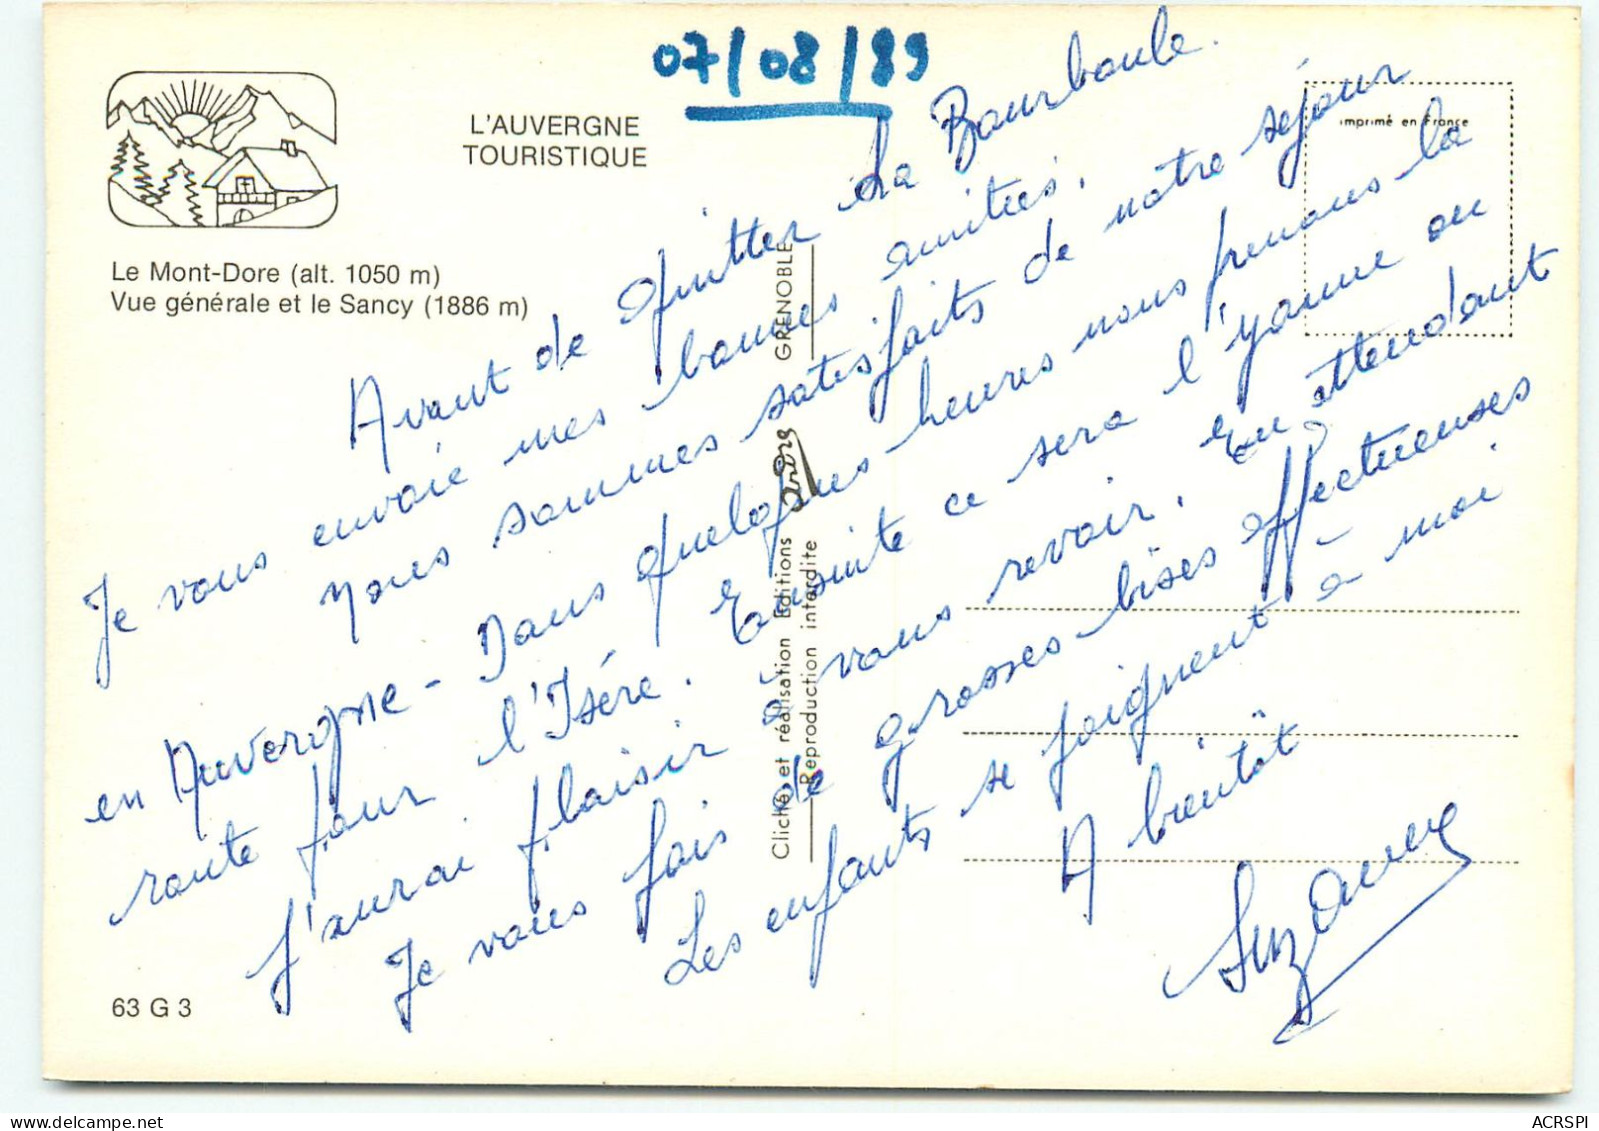 07/08/89
L'AUVERGNE
TOURISTIQUE
imprimé en France
Le Mont-Dore (alt. 1050 m)
Vue générale et le Sancy (1886 m)
Avant de quitter La Bourboule.
Je vous envoie mes bonnes amitiés.
Nous sommes satisfaits de notre séjour
en Auvergne - Dans quelques heures nous prenons la
route pour l'Isère. Ensuite ce sera l'Yonne où
J'aurai plaisir à vous revoir. En attendant
Je vous fais de grosses bises affectueuses
Les enfants se joignent à moi.
A bientôt
Suzanne
Cliché et réalisation Editions André GRENOBLE
Reproduction interdite
63 G 3
ACRSPI